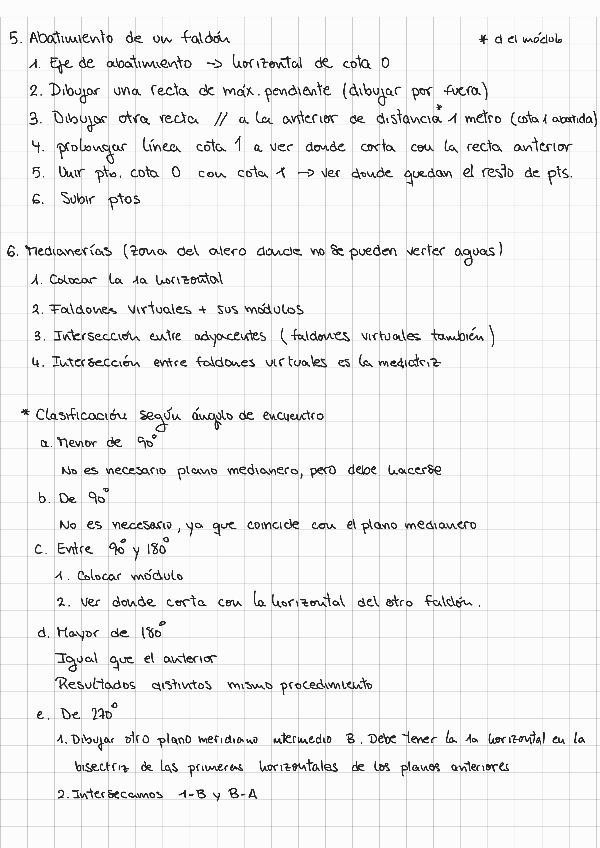 5. Abatimiento de un faldón
* d el módulo
1. Eje de abatimiento → horizontal de cota 0
2. Dibujar una recta de máx. pendiente (dibujar por fuera)
3. Dibujar otra recta // a la anterior de distancia* 1 metro (cota 1 abatida)
4. prolongar línea cota 1 a ver donde corta con la recta anterior
5. Unir pto. cota 0 con cota 1 → ver donde quedan el resto de pts.
6. Subir ptos
6. Medianerías (zona del alero donde no se pueden verter aguas)
1. Colocar la 1a horizontal
2. Faldones virtuales + sus módulos
3. Intersección entre adyacentes (faldones virtuales también)
4. Intersección entre faldones virtuales es la mediatriz
* Clasificación según ángulo de encuentro
a. Menor de 90°
No es necesario plano medianero, pero debe hacerse
b. De 90°
No es necesario, ya que coincide con el plano medianero
c. Entre 90° y 180°
1. Colocar módulo
2. Ver donde corta con la horizontal del otro faldón.
d. Mayor de 180°
Igual que el anterior
Resultados distintos mismo procedimiento
e. De 270°
1. Dibujar otro plano meridiano intermedio B. Debe tener la 1a horizontal en la
bisectriz de las primeras horizontales de los planos anteriores
2. Intersecamos 1-B y B-A